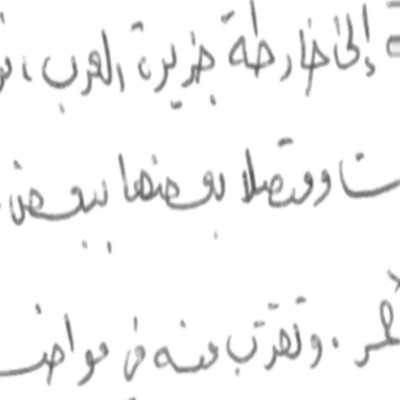 إلى خارطة جزيرة العرب،
ومتصلا بعضها ببعض
. وتقترب منه في مواضـ